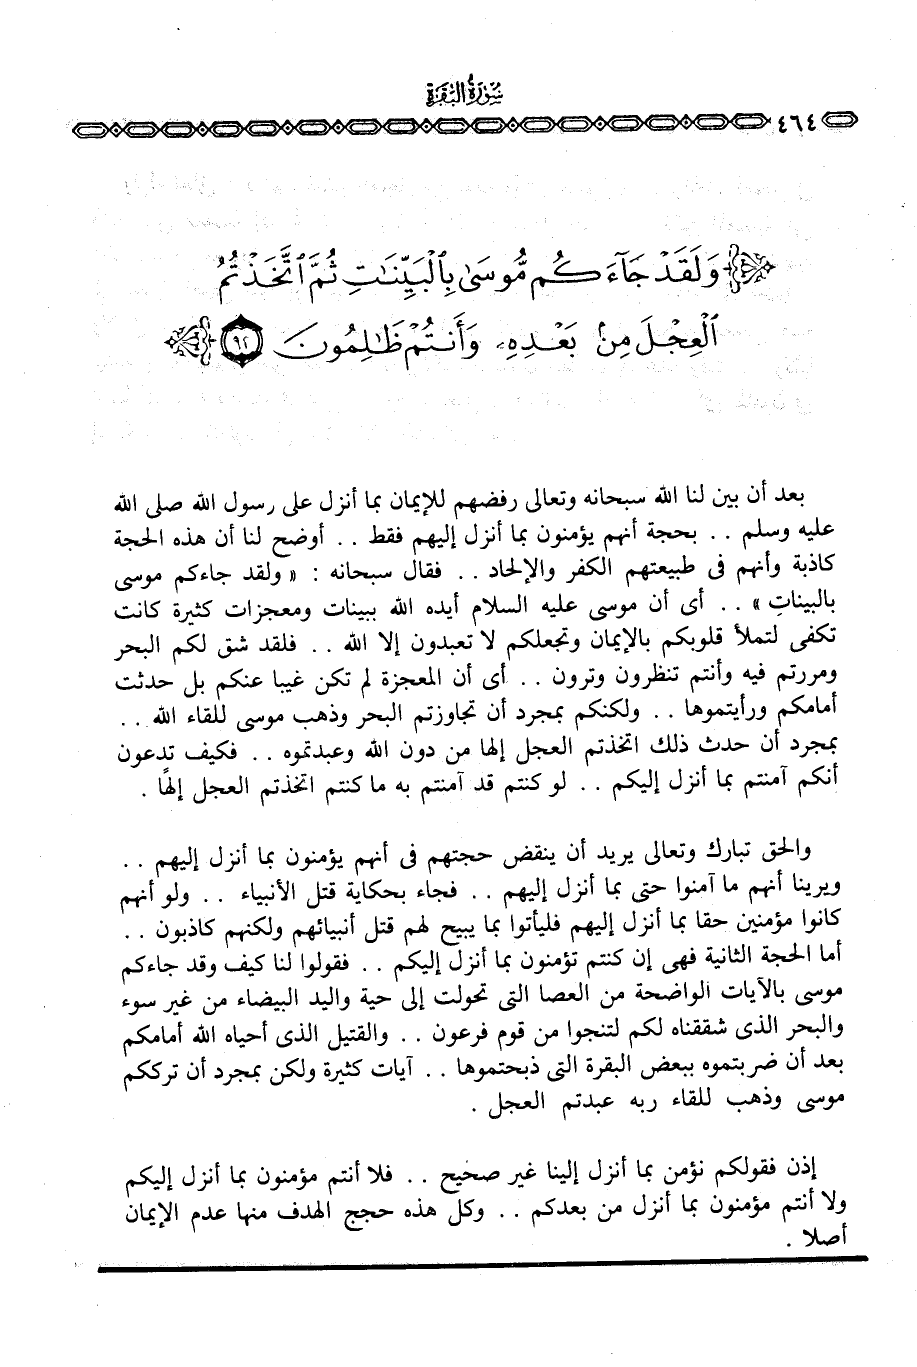 سورة البقرة
٤٦٤
وَلَقَدْ جَآءَكُم مُّوسَىٰ بِٱلْبَيِّنَٰتِ ثُمَّ ٱتَّخَذْتُمُ
ٱلْعِجْلَ مِنۢ بَعْدِهِۦ وَأَنتُمْ ظَٰلِمُونَ ٩٢
بعد أن بين لنا الله سبحانه وتعالى رفضهم للإيمان بما أنزل على رسول الله صلى الله
عليه وسلم .. بحجة أنهم يؤمنون بما أنزل إليهم فقط .. أوضح لنا أن هذه الحجة
كاذبة وأنهم فى طبيعتهم الكفر والإلحاد .. فقال سبحانه : « ولقد جاءكم موسى
بالبيناتِ » .. أى أن موسى عليه السلام أيده الله ببينات ومعجزات كثيرة كانت
تكفى لتملأ قلوبكم بالإيمان وتجعلكم لا تعبدون إلا الله .. فلقد شق لكم البحر
ومررتم فيه وأنتم تنظرون وترون .. أى أن المعجزة لم تكن غيبا عنكم بل حدثت
أمامكم ورأيتموها .. ولكنكم بمجرد أن تجاوزتم البحر وذهب موسى للقاء الله ..
بمجرد أن حدث ذلك اتخذتم العجل إلها من دون الله وعبدتموه .. فكيف تدعون
أنكم آمنتم بما أنزل إليكم .. لو كنتم قد آمنتم به ما كنتم اتخذتم العجل إلهًا .
والحق تبارك وتعالى يريد أن ينقض حجتهم فى أنهم يؤمنون بما أنزل إليهم ..
ويرينا أنهم ما آمنوا حتى بما أنزل إليهم .. فجاء بحكاية قتل الأنبياء .. ولو أنهم
كانوا مؤمنين حقا بما أنزل إليهم فليأتوا بما يبيح لهم قتل أنبيائهم ولكنهم كاذبون ..
أما الحجة الثانية فهى إن كنتم تؤمنون بما أنزل إليكم .. فقولوا لنا كيف وقد جاءكم
موسى بالآيات الواضحة من العصا التى تحولت إلى حية واليد البيضاء من غير سوء
والبحر الذى شققناه لكم لتنجوا من قوم فرعون .. والقتيل الذى أحياه الله أمامكم
بعد أن ضربتموه ببعض البقرة التى ذبحتموها .. آيات كثيرة ولكن بمجرد أن ترككم
موسى وذهب للقاء ربه عبدتم العجل .
إذن فقولكم نؤمن بما أنزل إلينا غير صحيح .. فلا أنتم مؤمنون بما أنزل إليكم
ولا أنتم مؤمنون بما أنزل من بعدكم .. وكل هذه حجج الهدف منها عدم الإيمان
أصلا .